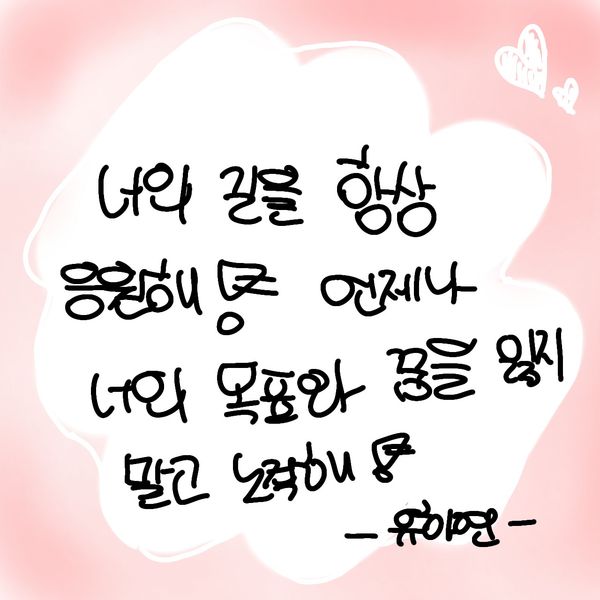 너의 길을 항상
응원해용 언제나
너의 목표와 꿈을 잃지
말고 노력해용
- 유하연 -